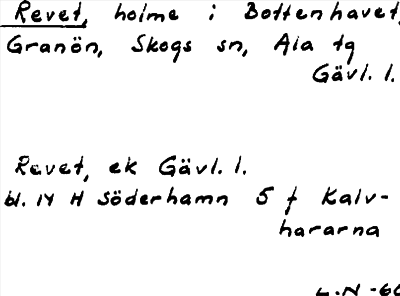 Revet, holme i Bottenhavet,
Granön, Skogs sn, Ala tg
Gävl. l.
Revet, ek Gävl. l.
bl. 14 H Söderhamn 5 f Kalv-
hararna
L.N -66